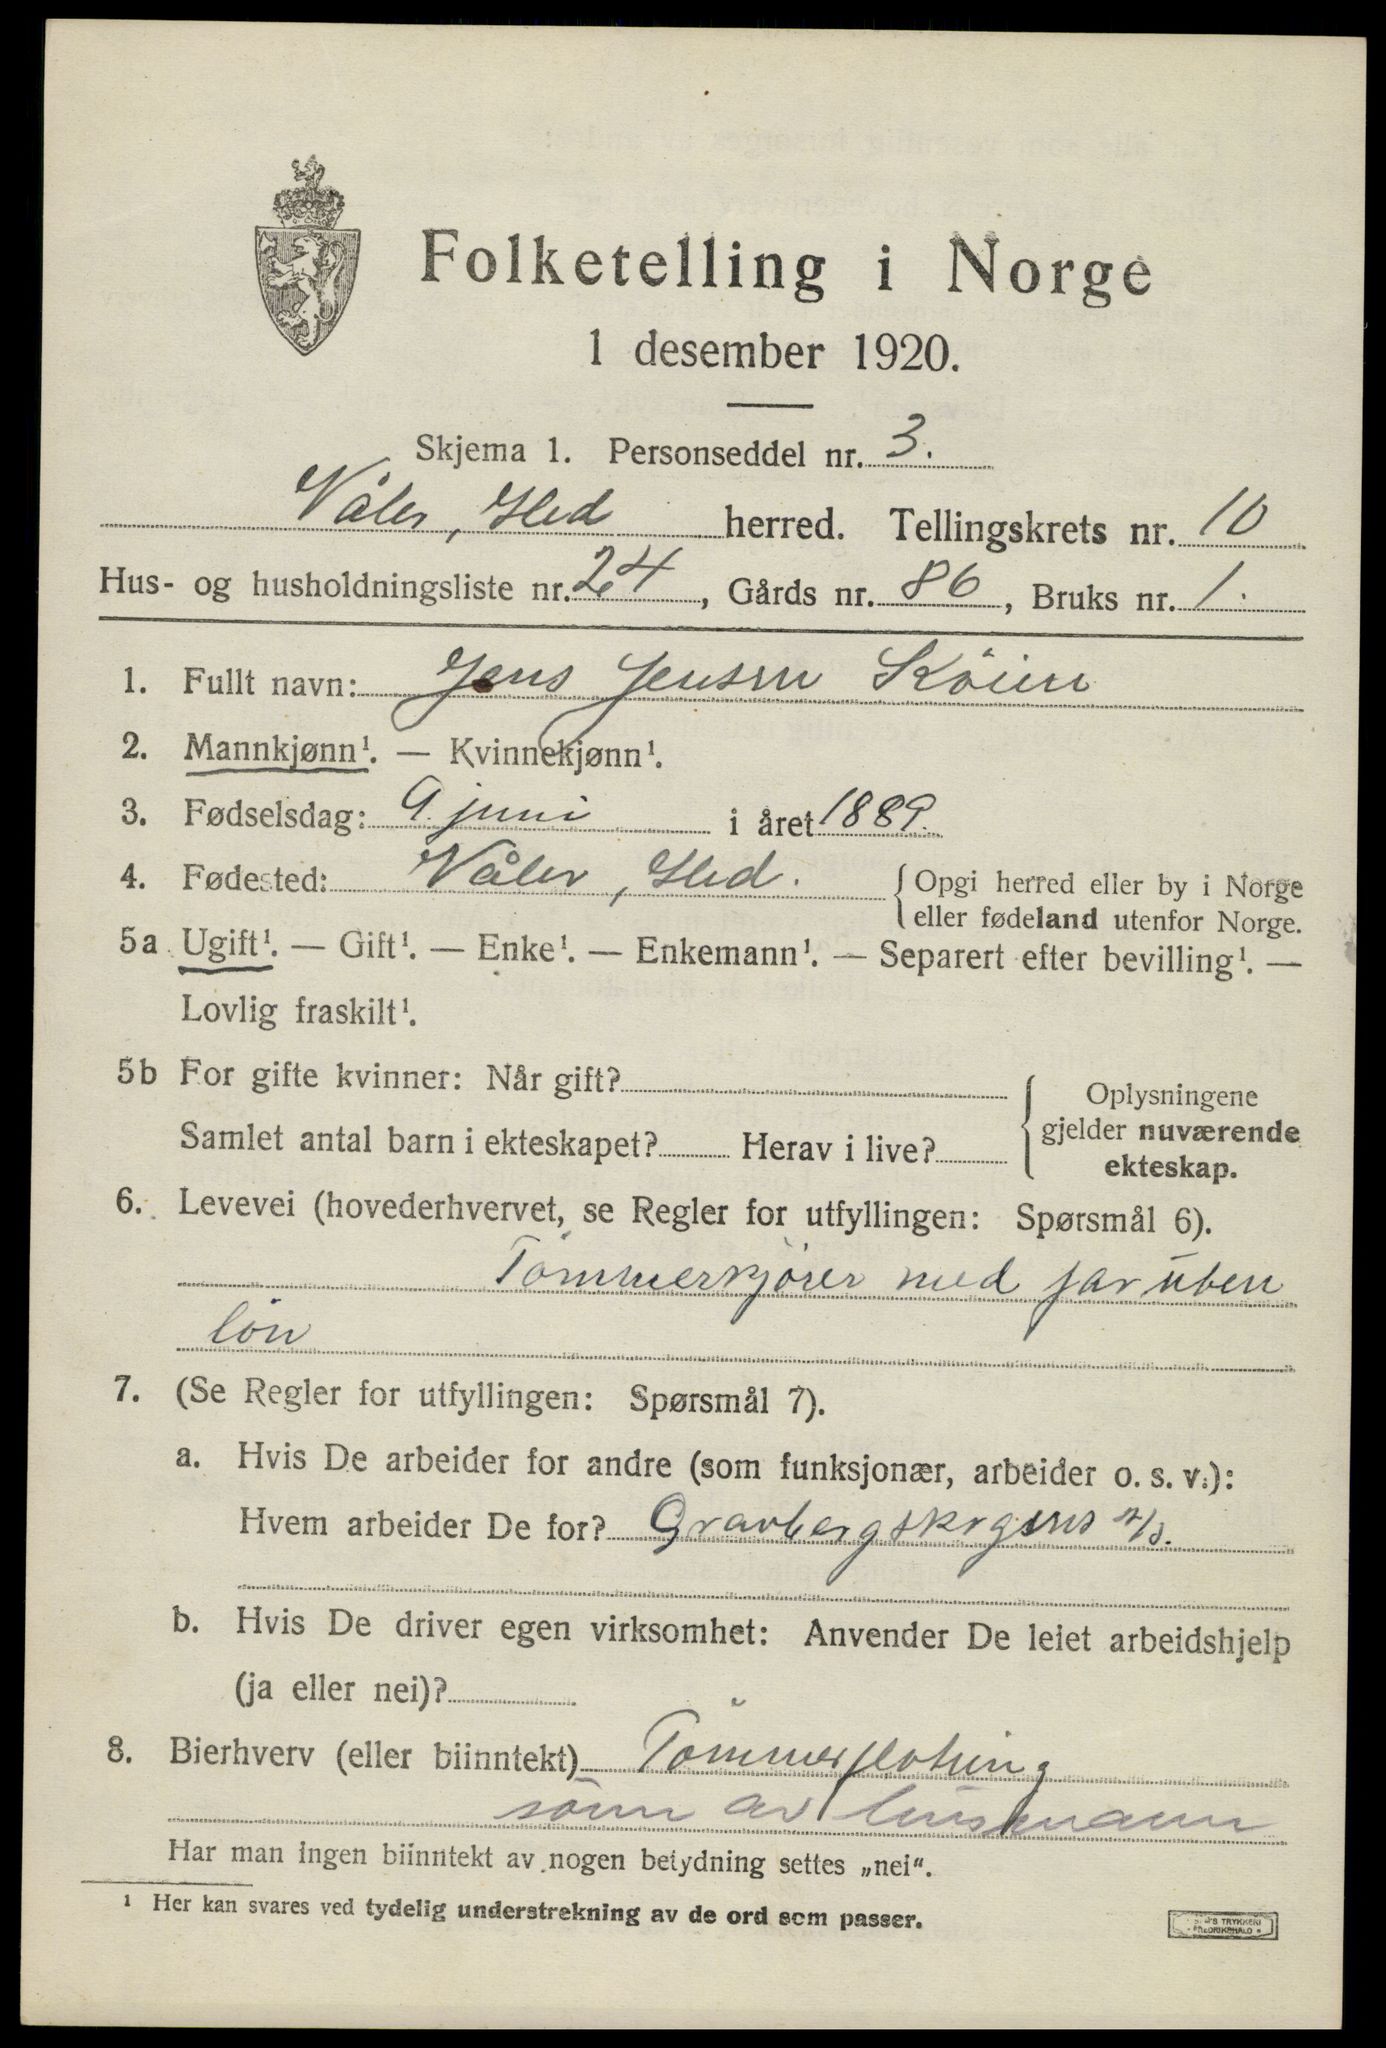 Folketelling i Norge
1 desember 1920.
Skjema 1. Personseddel nr. 3.
Våler, Hed herred. Tellingskrets nr. 10
Hus- og husholdningsliste nr. 24, Gårds nr. 86, Bruks nr. 1.
1. Fullt navn: Jens Jensen Köien
2. Mannkjønn¹. — Kvinnekjønn¹.
3. Fødselsdag: 9 juni i året 1889.
4. Fødested: Våler, Hed. { Opgi herred eller by i Norge
eller fødeland utenfor Norge.
5a Ugift¹. — Gift¹. — Enke¹. — Enkemann¹. — Separert efter bevilling¹. —
Lovlig fraskilt¹.
5b For gifte kvinner: Når gift?
Samlet antal barn i ekteskapet? Herav i live?
{ Oplysningene
gjelder nuværende
ekteskap.
6. Levevei (hovederhvervet, se Regler for utfyllingen: Spørsmål 6).
Tömmerkjörer med far uten
lön
7. (Se Regler for utfyllingen: Spørsmål 7).
a. Hvis De arbeider for andre (som funksjonær, arbeider o. s. v.):
Hvem arbeider De for? Gravbergskogens A/S.
b. Hvis De driver egen virksomhet: Anvender De leiet arbeidshjelp
(ja eller nei)?
8. Bierhverv (eller biinntekt) Tömmerflötning
sönn av husmann
Har man ingen biinntekt av nogen betydning settes „nei“.
¹ Her kan svares ved tydelig understrekning av de ord som passer.
TRYKKERI
FREDRIKSHALD